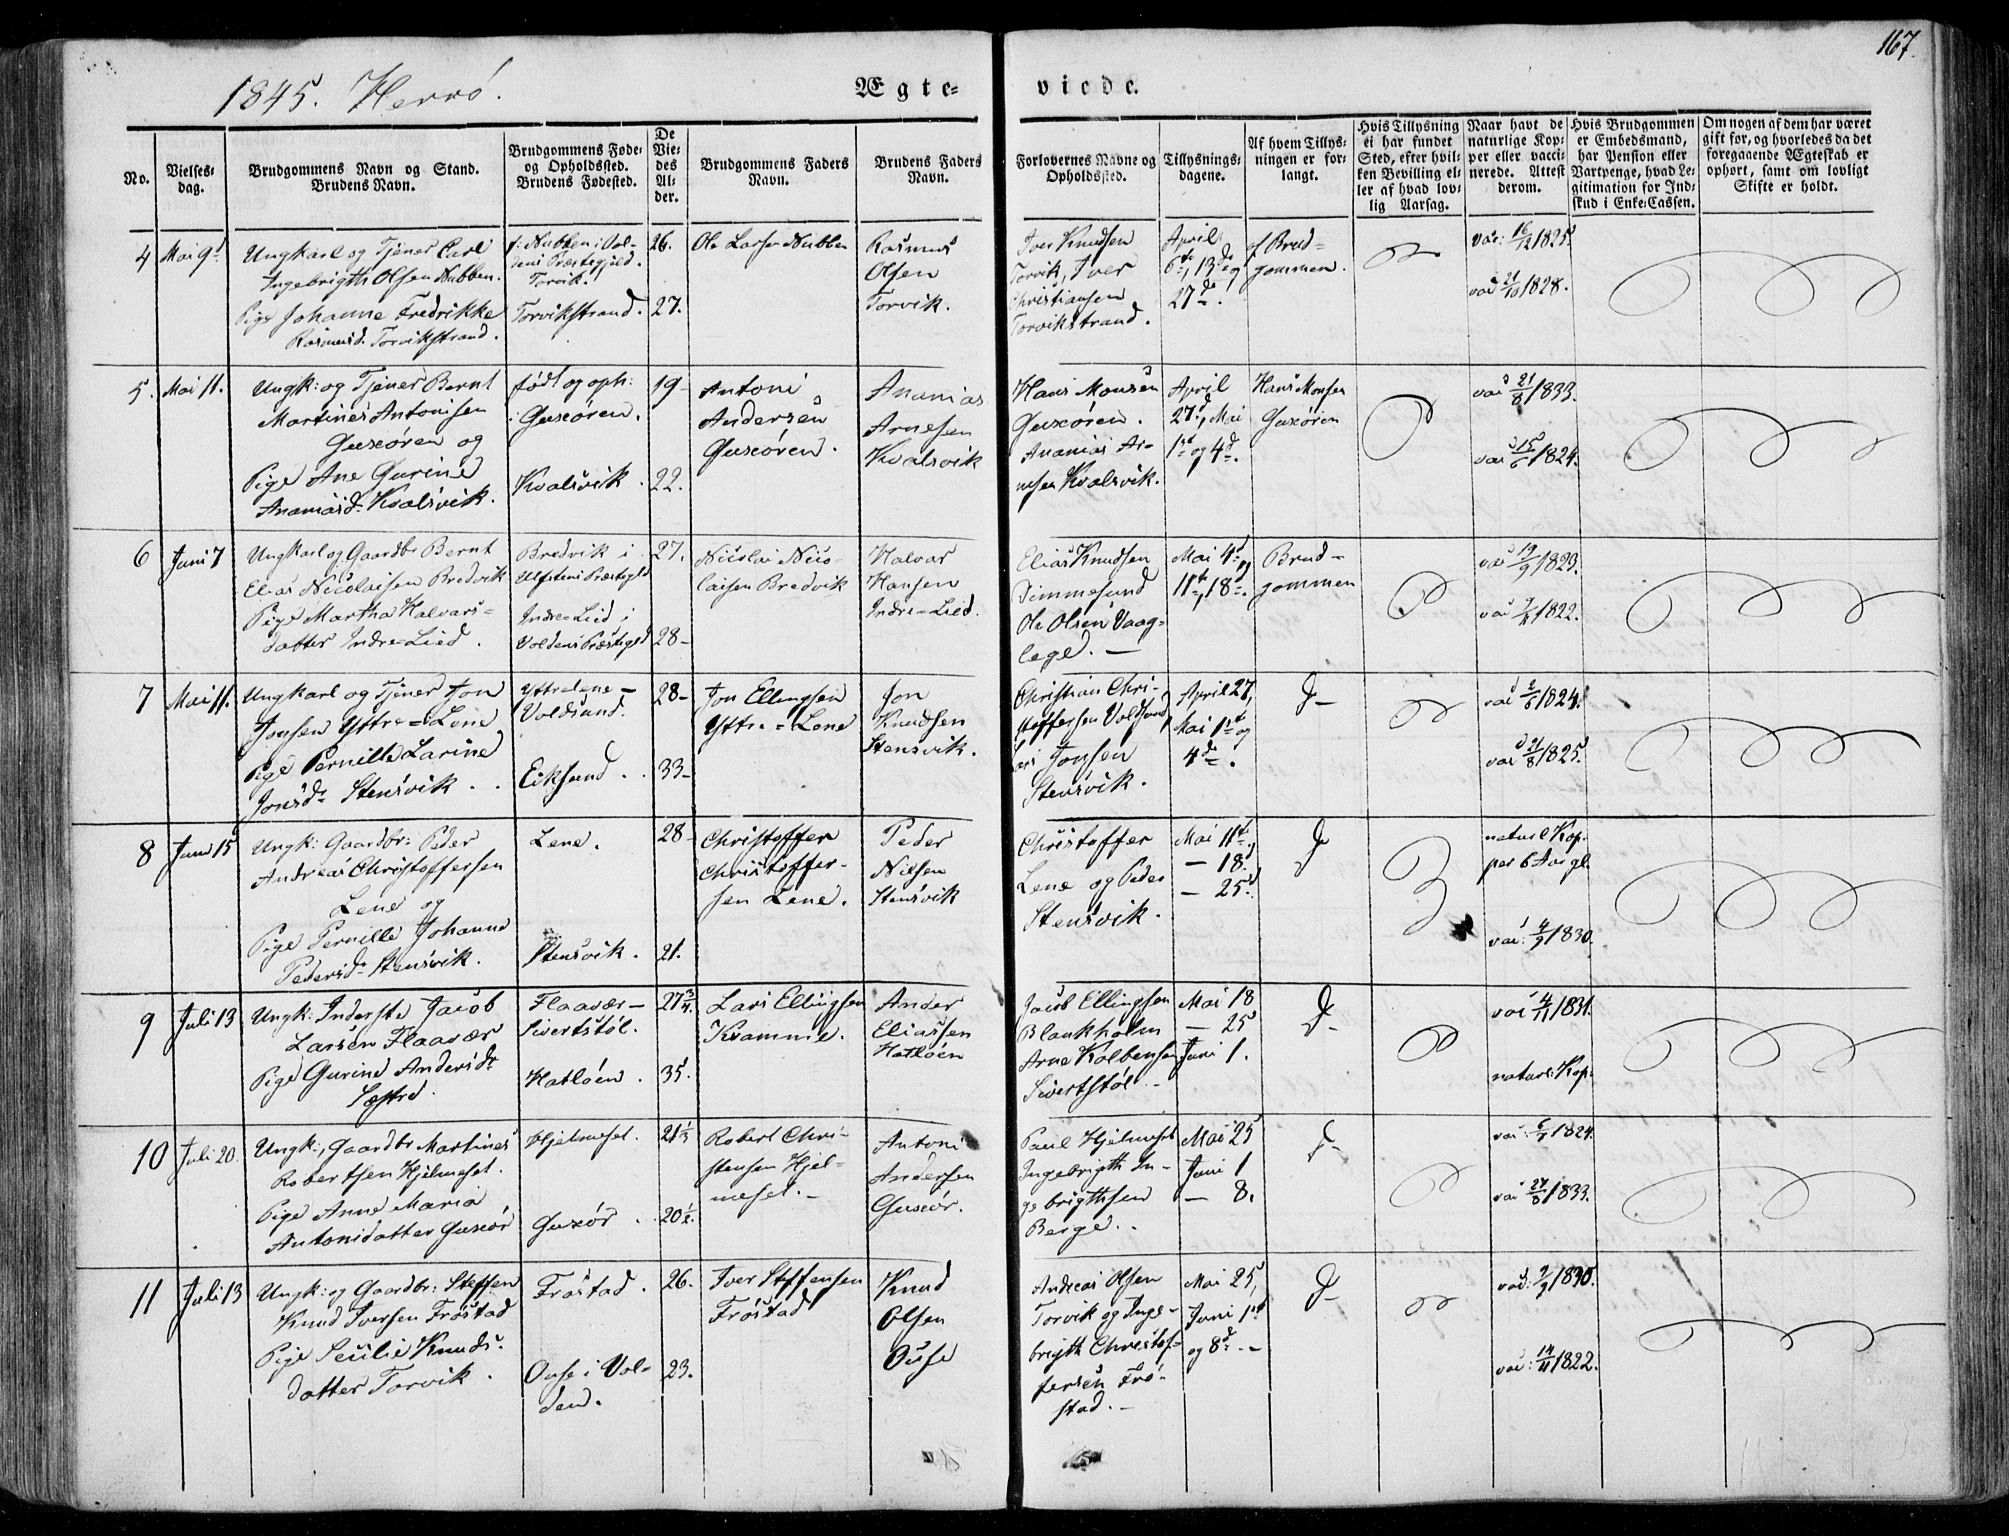 167.
1845. Herrö.
Ægte-
viede.
No.
Vielses-
dag.
Brudgommens Navn og Stand.
Brudens Navn.
Brudgommens Føde-
og Opholdssted.
Brudens Fødested.
De
Vie-
des
Al-
der.
Brudgommens Faders
Navn.
Brudens Faders
Navn.
Forlovernes Navne og
Opholdssted.
Tillysnings-
dagene.
Af hvem Tillys-
ningen er for-
langt.
Hvis Tillysning
ei har fundet
Sted, efter hvil-
ken Bevilling el-
ler af hvad lov-
lig Aarsag.
Naar havt de
naturlige Kop-
per eller vacci-
nerede. Attest
derom.
Hvis Brudgommen
er Embedsmand,
har Pension eller
Vartpenge, hvad Le-
gitimation for Ind-
skud i Enke-Cassen.
Om nogen af dem har været
gift før, og hvorledes da det
foregaaende Ægteskab er
ophørt, samt om lovligt
Skifte er holdt.
4
Mai 9d
Ungkarl og Tjener Carl
Ingebrigth Olsen Nubben.
Pige Johanne Fredrikke
Rasmusd. Torvikstrand.
f: Nubben i Vol-
dens Præstegjeld.
Torvik.
Torvikstrand.
26.
27.
Ole Larsen Nubben
Rasmus
Olsen
Torvik.
Iver Knudsen
Torvik, Iver
Christiansen
Torvikstrand.
April
6te, 13de og
27de.
af Brud-
gommen.
vac: 16/12 1825.
vac 21/10 1828.
5.
Mai 11.
Ungk: og Tjener Bernt
Martines Antonisen
Gusøren og
Pige Ane Gurine
Ananiasd. Kvalsvik.
født og oph:
Gusøren.
Kvalsvik.
19-
22.
Antoni
Andersen
Gusøren.
Ananias
Arnesen
Kvalsvik
Hans Monsen
Gusøren.
Ananias Ar-
nesen Kvalsvik.
April
27d, Mai
1st og 4d.
Hans Monsen
Gusøren
vac 21/8 1833.
vac 15/6 1824.
6
Juni 7
Ungkarl og Gaardbr Bernt
Elias Nicolaisen Bredvik
Pige Martha Halvars-
datter Indre-Lied.
Bredvik i
Ulfstens Præstegld
Indre-Lied i
Voldens Præstegld
27.
28-
Nicolai Nico-
laisen Bredvik
Halvar
Hansen
Indre-Lied.
Elias Knudsen
Dimmesund
Ole Olsen Vaag-
lege. -
Mai 4d,
11te, 18d.
Brud-
gommen
vac 19/9 1823.
1822.
7
Mai 11.
Ungkarl og Tjener Jon
Jonsen Yttre-Lene
Pige Pernille Larine
Jonsdr Stensvik.
Yttrelene-
Voldsund.
Eiksund.
28-
33-
Jon Ellingsen
Yttre-Lene
Jon
Knudsen
Stensvik.
Christian Chri-
stoffersen Voldsund,
Jonsen
Stensvik.
April 27,
Mai 1st og
4de.
D-
vac 2/6 1824.
vac 21/8 1825.
8
Juni 15
Ungk: Gaardbr: Peder
Andreas Christoffersen
Lene og
Pige Pernille Johanne
Pedersdr Stensvik.
Lene.
Stensvik.
28-
21.
Christoffer
Christoffer-
sen Lene.
Peder
Nilsen
Stensvik
Christoffer
Lene og Peder
Stensvik.
Mai 11te,
- 18.
- 25.
D
naturl Kop-
per 6 Aar gl.
vac: 4/9 1830.
9
Juli 13
Ungk: Inderste Jacob
Larsen Flaavær
Pige Gurine Andersdr
Sæstre.
Flaavær-
Sivertstøl.
Hatløen.
27 3/4.
35.
Lars Ellingsen
Kvamme.
Ander
Eliassen
Hatløen
Jacob Ellingsen
Blankholm
Arne Kolbensen
Sivertstøl.-
Mai 18
- 25
Juni 1.
D-
vac 4/11 1831.
naturl: Kop:
10
Juli 20.
Ungk:, Gaardbr Martines
Robertsen Hjelmeset.
Pige Anne Maria
Antonidatter Gusør
Hjelmeset.
Gusør.
21 1/3
20 1/2.
Robert Chri-
stensen Hjel-
meset.-
Antoni
Andersen
Gusør.
Paul Hjelmeset
Ingebrigth In-
gebrigthsen
Berge.
Mai 25
Juni 1
- 8.
D-
1824.
vac 27/8 1833.
11
Juli 13
Ungk: og Gaardbr: Steffen
Knud Iversen Frøstad
Pige Secilie Knuds-
datter Torvik.
Frøstad.
Ouse i Vol-
den.
26.
23.
Iver Steffensen
Frøstad
Knud
Olsen
Ouse
Andreas Olsen
Torvik og Inge-
brigth Christof-
fersen Frø-
stad.-
Mai 25,
Juni 1st
og 8d.-
D-
vac: 2/9 1830.
vac: 14/11 1822.